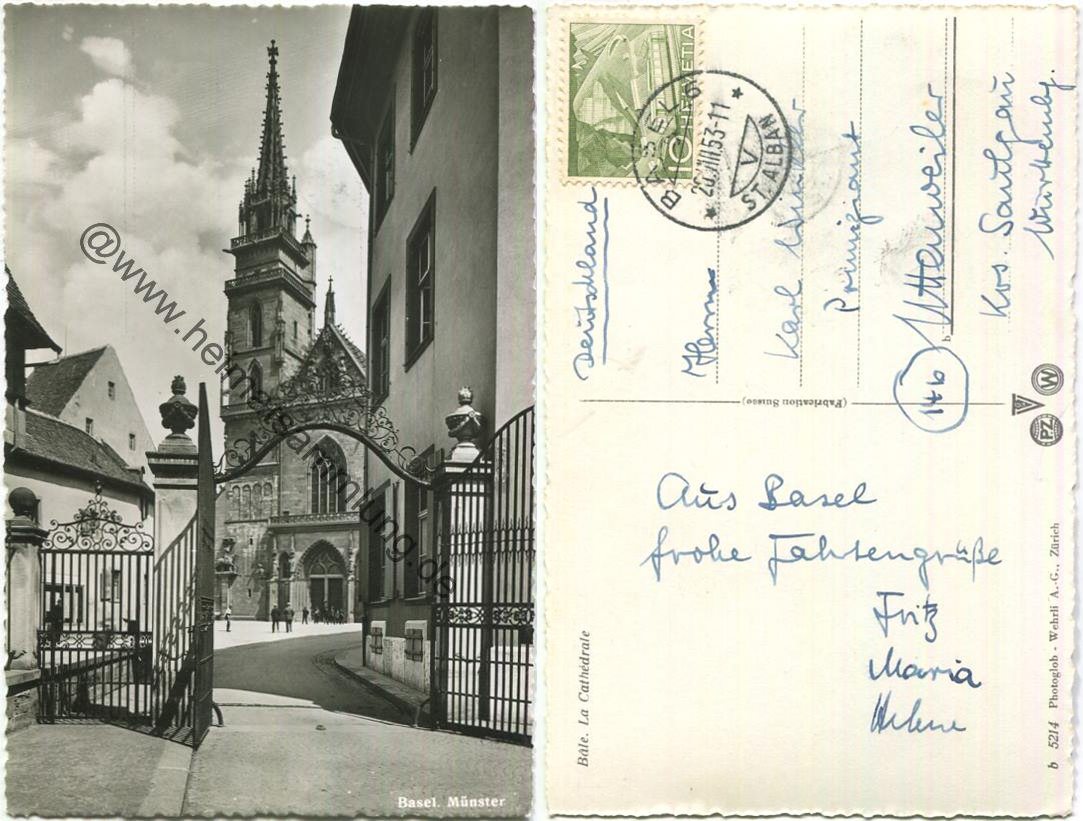 Basel. Münster
@www.heimatsammlung.de
HELVETIA
10
BASEL 6
26.VIII.53-11
V
ST. ALBAN
Deutschland
Herrn
Karl
Uttenweiler
Krs. Saulgau
Württembg.
14b
(Fabrication Suisse)
PZ
W
Aus Basel
frohe Fahrtengrüße
Fritz
Maria
Helene
Bâle. La Cathédrale
b 5214 Photoglob - Wehrli A.-G., Zürich